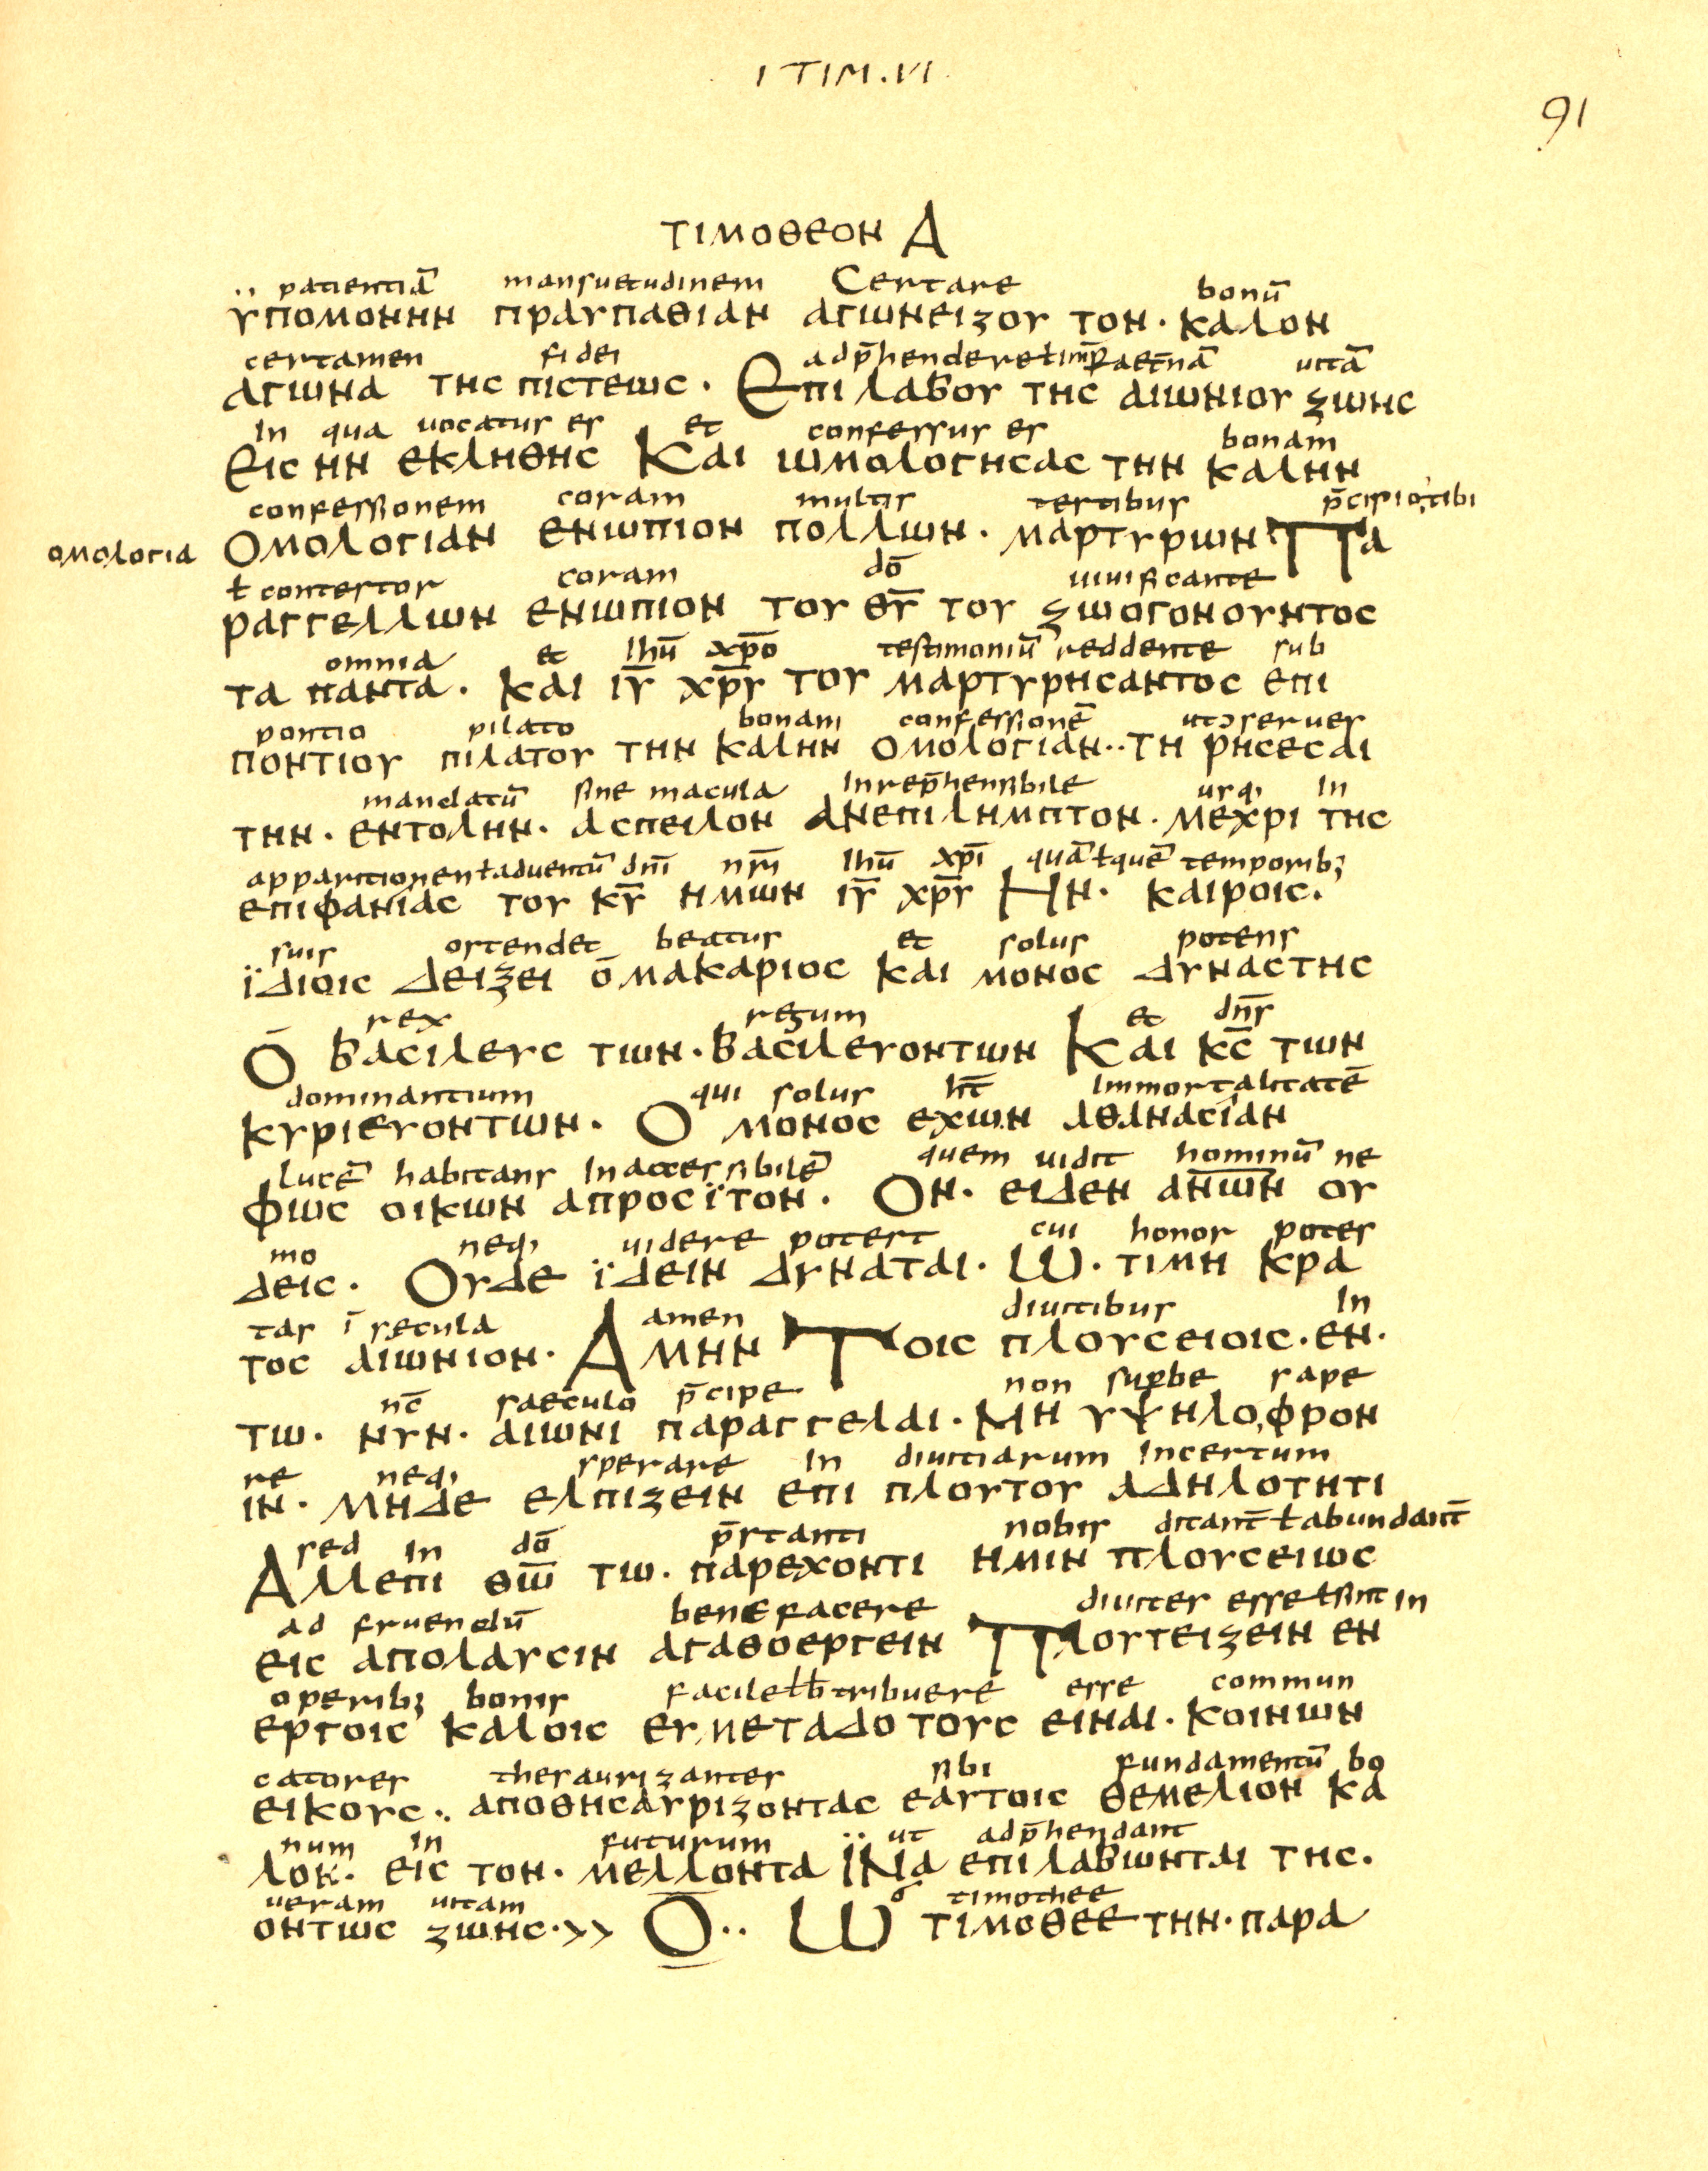 I TIM. VI
91
ΤΙΜΟΘΕΟΝ Α
patientiā mansuetudinem Certare bonū
υπομονην πραυπαθιαν αγωνειζου τον· καλον
certamen fidei adp̄henderełim̄p̄ aet̄nā uitā
αγωνα της πιστεως· Επι λαβου της αιωνιου ζωης
In qua uocatus es et confessus es bonam
Εις ην εκληθης Και ωμολογησας την καλην
confessionem coram multis testibus p̄cipio tibi
ομολογια Ομολογιαν ενωπιον πολλων· μαρτυρων Πα
ł contestor coram dō uiuificante
ραγγελλων ενωπιον του θ̅υ̅ του ζωογονουντος
omnia et Ihū xp̄o testimoniū reddente sub
τα παντα· Και ι̅υ̅ χ̅ρ̅υ̅ του μαρτυρησαντος επι
pontio pilato bonam confessionē utɔserues
ποντιου πιλατου την καλην ομολογιαν·· Τη ρησεσαι
mandatū sine macula Inrep̄hensibile usq; In
την· εντολην· ασπειλον ανεπιλημπτον· Μεχρι της
apparitionemładuentū dn̄i nr̄i Ihū xp̄i quāłquē temporib;
επιφανιας του κ̅υ̅ ημων ι̅υ̅ χ̅ρ̅υ̅ Ην· καιροις·
suis ostendet beatus et solus potens
ϊδιοις δειξει ο̄ μακαριος και μονος δυναστης
rex regum et dn̄s
Ο̄ βασιλευς των· βασιλευοντων Και κ̅ς̅ των
dominantium qui solus ht̄ Immortalitatē
κυριευοντων· Ο μονος εχων αθανασιαν
lucē habitans Inaccessibilē quem uidit hominū ne
φως οικων απροσϊτον· Ον· ειδεν α̅ν̅ω̅ν̅ ου
mo neq; uidere potest cui honor potes
δεις· Ουδε ϊδειν δυναται· Ω· τιμη κρα
tas ī secula amen diuitibus In
τος αιωνιον· Αμην Τοις πλουσειοις· εν·
nc̄ saeculo p̄cipe non sup̱be sape
τω· νυν· αιωνι παραγγελαι· Μη υψηλο,φρον
re neq; sperare In diuitiarum Incertum
ιν· Μηδε ελπιζειν επι πλουτου αδηλοτητι
sed In dō p̄stanti nobis ditant̄łabundant̄
Αλλεπι θ̅ω̅ τω· παρεχοντι ημιν πλουσειως
ad fruendū benefacere diuites essełsint in
εις απολαυσιν αγαθοεργειν Πλουτειζειν εν
operib; bonis facilełb̄tribuere esse commun
εργοις καλοις ευ,μεταδο τους ειναι· Κοινων
catores thesaurizantes sibi fundamentū bo
εικους·. αποθησαυριζοντας εαυτοις θεμελιον κα
num in futurum ut adp̄hendant
λον· εις τον· μελλοντα ΪΝα επι λαβωνται της·
ueram uitam o timothee
οντως ζωης·>> Ο·· Ω τιμοθεε την· παρα